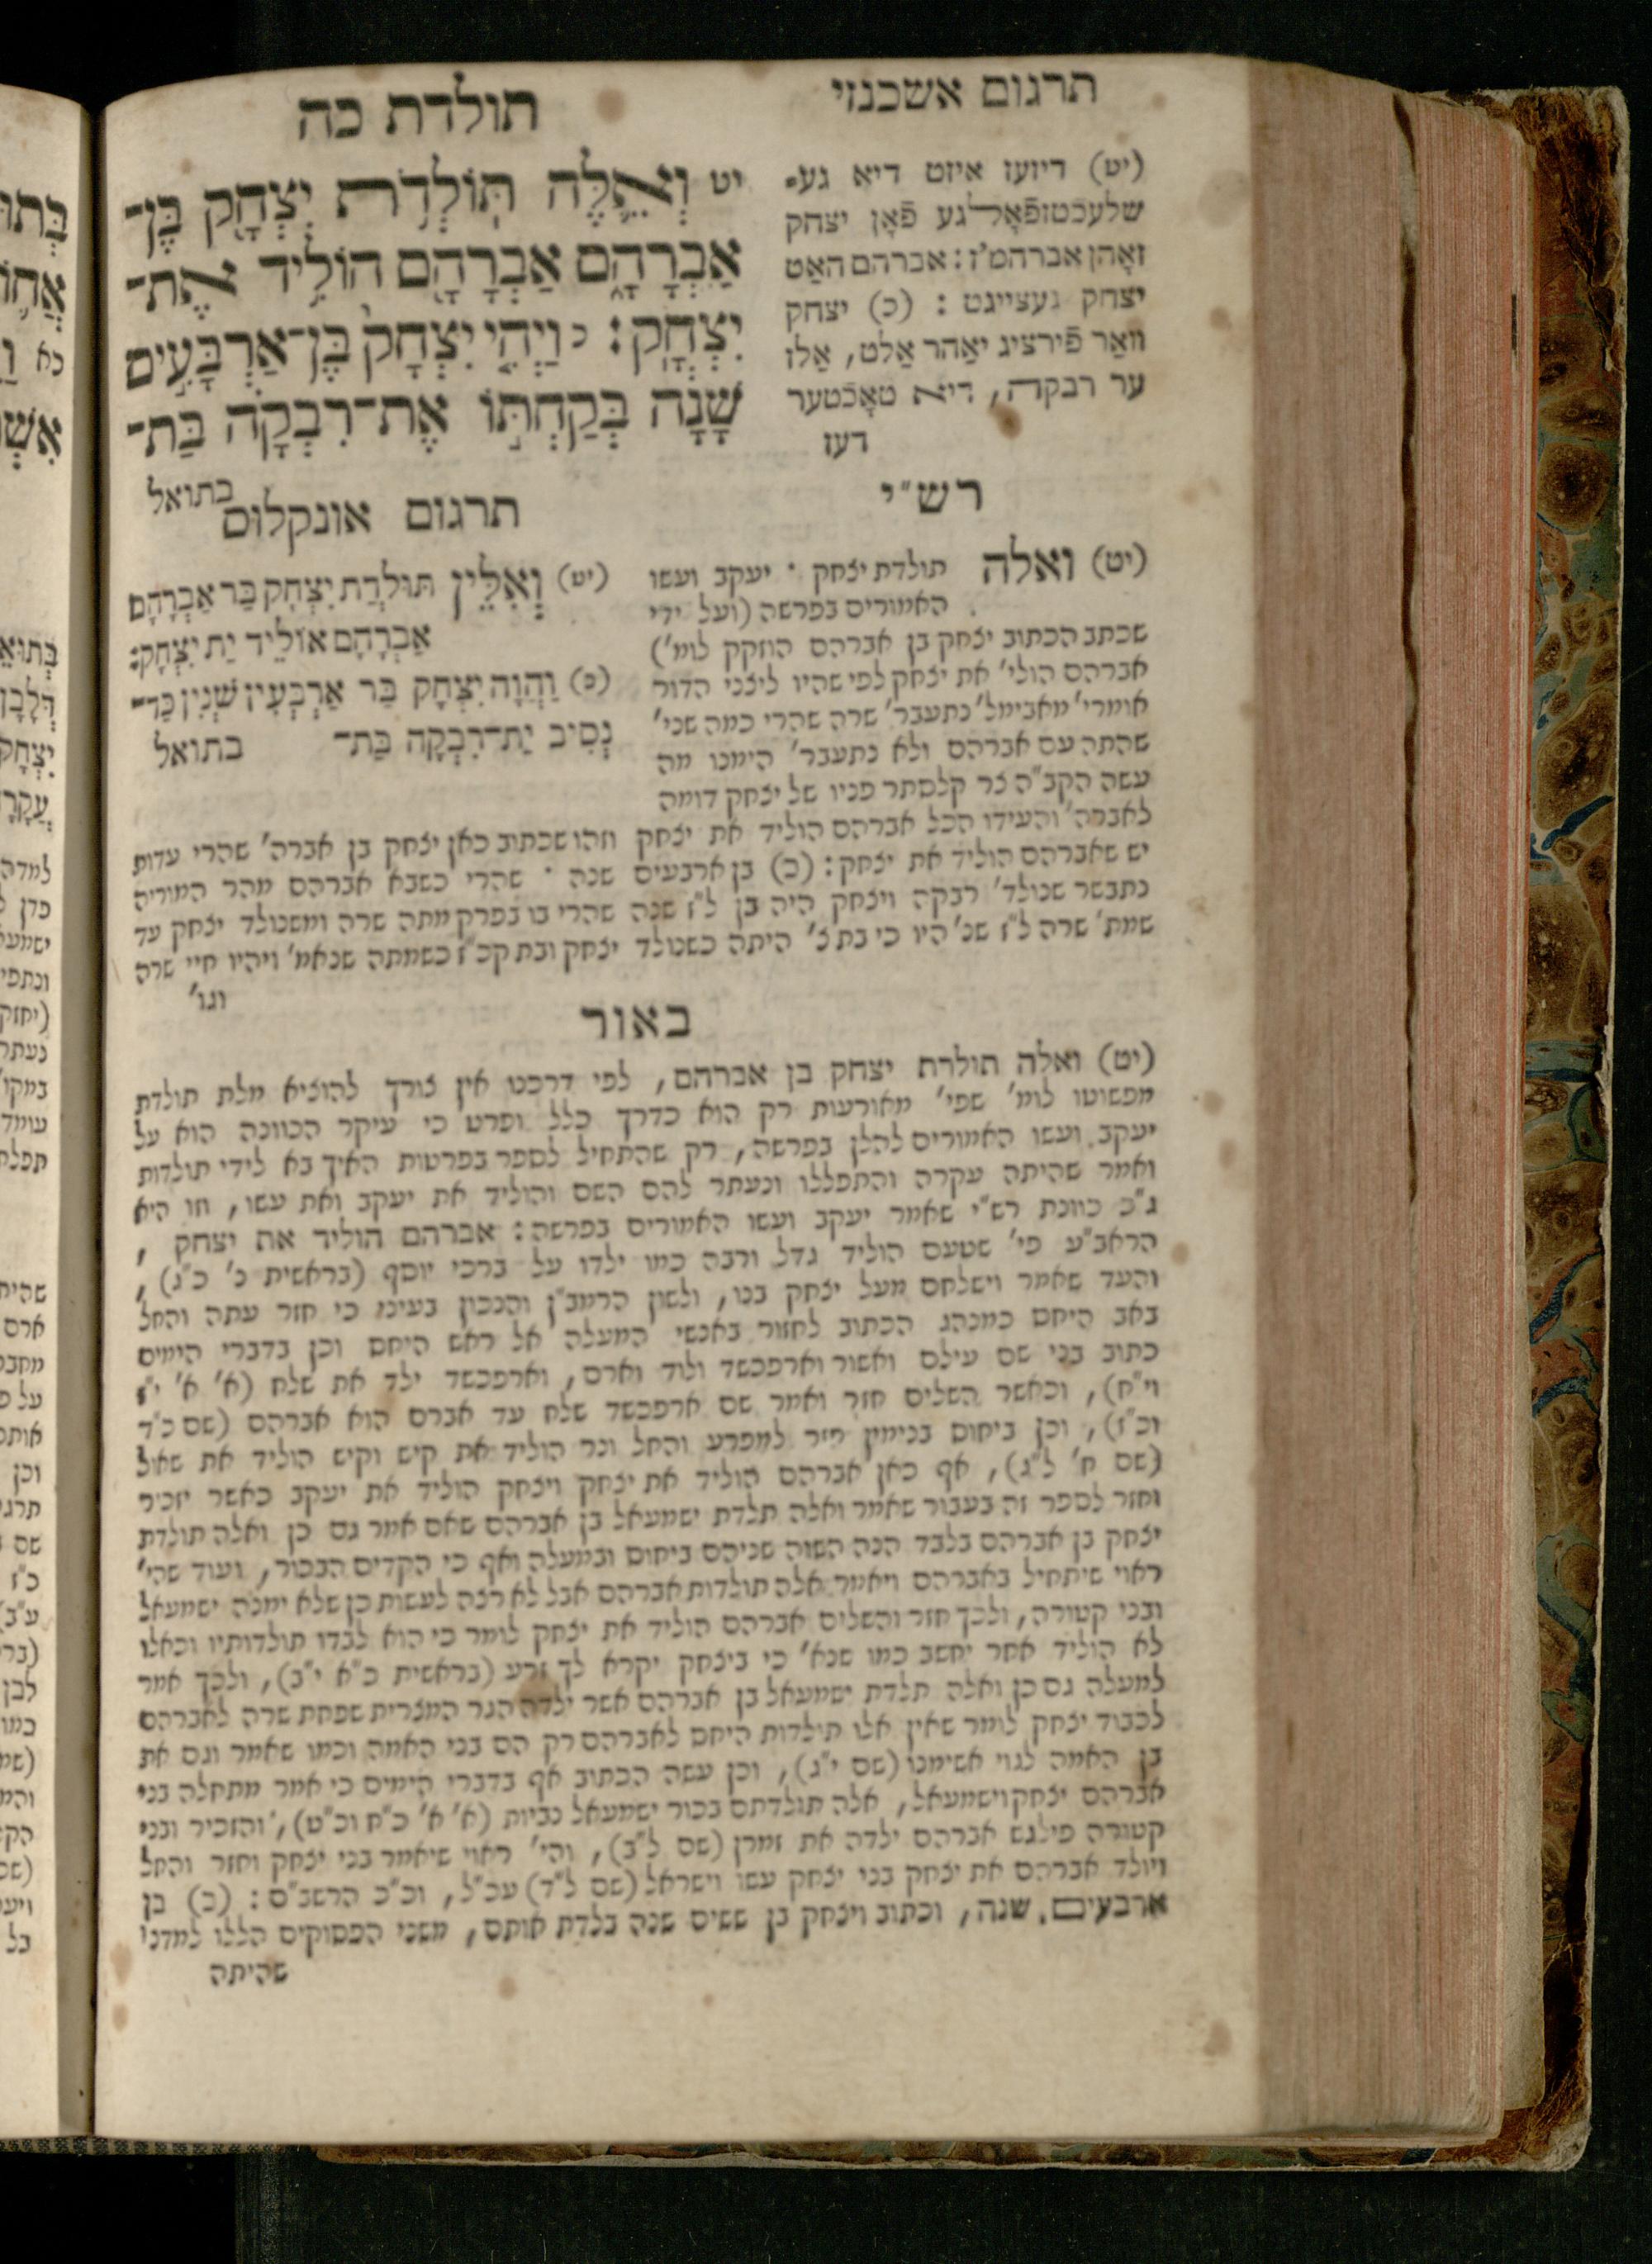 תרגום אשכנזי
תולדת כה
(יט) דיזעז איזט דיא גע⸗
שלעכטזפֿאָלגע פֿאָן יצחק
זאָהן אברהם'ז: אברהם האַט
יצחק געצייגט: (כ) יצחק
וואַר פֿירציג יאַהר אַלט, אַלז
ער רבקה, דיא טאָכטער
דעז
יט וְאֵלֶּה תּוֹלְדֹת יִצְחָק בֶּן־
אַבְרָהָם אַבְרָהָם הוֹלִיד אֶת־
יִצְחָק: כ וַיְהִי יִצְחָק בֶּן־אַרְבָּעִים
שָׁנָה בְּקַחְתּוֹ אֶת־רִבְקָה בַּת־
בתואל
רש"י
(יט) ואלה תולדת יצחק · יעקב ועשו
האמורים בפרשה (ועל ידי
שכתב הכתוב יצחק בן אברהם הוזקק לומ')
אברהם הולי' את יצחק לפי שהיו ליצני הדור
אומרי' מאבימל' נתעבר' שרה שהרי כמה שני'
שהתה עם אברהם ולא נתעבר' הימנו מה
עשה הקב"ה צר קלסתר פניו של יצחק דומה
לאברה' והעידו הכל אברהם הוליד את יצחק וזהו שכתוב כאן יצחק בן אברה' שהרי עדות
יש שאברהם הוליד את יצחק: (כ) בן ארבעים שנה · שהרי כשבא אברהם מהר המוריה
נתבשר שנולד' רבקה ויצחק היה בן ל"ז שנה שהרי בו בפרק מתה שרה ומשנולד יצחק עד
שמת' שרה ל"ז שנ' היו כי בת צ' היתה כשנולד יצחק ובת קכ"ז כשמתה שנאמ' ויהיו חיי שרה
וגו'
תרגום אונקלוס
(יט) וְאִלֵּין תּוּלְדַת יִצְחָק בַּר אַבְרָהָם
אַבְרָהָם אוֹלֵיד יַת יִצְחָק:
(כ) וַהֲוָה יִצְחָק בַּר אַרְבְּעִין שְׁנִין כַּד־
נְסִיב יַת־רִבְקָה בַּת־ בתואל
באור
(יט) ואלה תולדת יצחק בן אברהם, לפי דרכנו אין צורך להוציא מלת תולדת
מפשוטו לומ' שפי' מאורעות רק הוא כדרך כלל ופרט כי עיקר הכוונה הוא על
יעקב ועשו האמורים להלן בפרשה, רק שהתחיל לספר בפרטות האיך בא לידי תולדות
ואמר שהיתה עקרה והתפללו ונעתר להם השם והוליד את יעקב ואת עשו, וזו היא
ג"כ כוונת רש"י שאמר יעקב ועשו האמורים בפרשה: אברהם הוליד את יצחק,
הראב"ע פי' שטעם הוליד גדל ורבה כמו ילדו על ברכי יוסף (בראשית נ' כ"ג),
והעד שאמר וישלחם מעל יצחק בנו, ולשון הרמב"ן והנכון בעיני כי חזר עתה והחל
באב היחס כמנהג הכתוב לחזור באנשי המעלה אל ראש היחס וכן בדברי הימים
כתוב בני שם עילם ואשור וארפכשד ולוד וארם, וארפכשד ילד את שלח (א' א' י"ז
וי"ח), וכאשר השלים חזר ואמר שם ארפכשד שלח עד אברם הוא אברהם (שם כ"ד
וכ"ז), וכן ביחוס בנימין חזר למפרע והחל ונר הוליד את קיש וקיש הוליד את שאול
(שם ח' ל"ג), אף כאן אברהם הוליד את יצחק ויצחק הוליד את יעקב כאשר יזכיר
וחזר לספר זה בעבור שאמר ואלה תלדת ישמעאל בן אברהם שאם אמר גם כן ואלה תולדת
יצחק בן אברהם בלבד הנה השוה שניהם ביחוס ובמעלה ואף כי הקדים הבכור, ועוד שהי'
ראוי שיתחיל באברהם ויאמר אלה תולדות אברהם אבל לא רצה לעשות כן שלא ימנה ישמעאל
ובני קטורה, ולכך חזר והשלים אברהם הוליד את יצחק לומר כי הוא לבדו תולדותיו וכאלו
לא הוליד אחר יחשב כמו שנא' כי ביצחק יקרא לך זרע (בראשית כ"א י"ב), ולכך אמר
למעלה גם כן ואלה תלדת ישמעאל בן אברהם אשר ילדה הגר המצרית שפחת שרה לאברהם
לכבוד יצחק לומר שאין אלו תולדות היחס לאברהם רק הם בני האמה וכמו שאמר וגם את
בן האמה לגוי אשימנו (שם י"ג), וכן עשה הכתוב אף בדברי הימים כי אמר מתחלה בני
אברהם יצחק וישמעאל, אלה תולדתם בכור ישמעאל נביות (א' א' כ"ח וכ"ט), והזכיר ובני
קטורה פילגש אברהם ילדה את זמרן (שם ל"ב), והי' ראוי שיאמר בני יצחק וחזר והחל
ויולד אברהם את יצחק בני יצחק עשו וישראל (שם ל"ד) עכ"ל, וכ"כ הרשב"ם: (כ) בן
ארבעים שנה, וכתוב ויצחק בן ששים שנה בלדת אותם, משני הפסוקים הללו למדנו
שהיתה